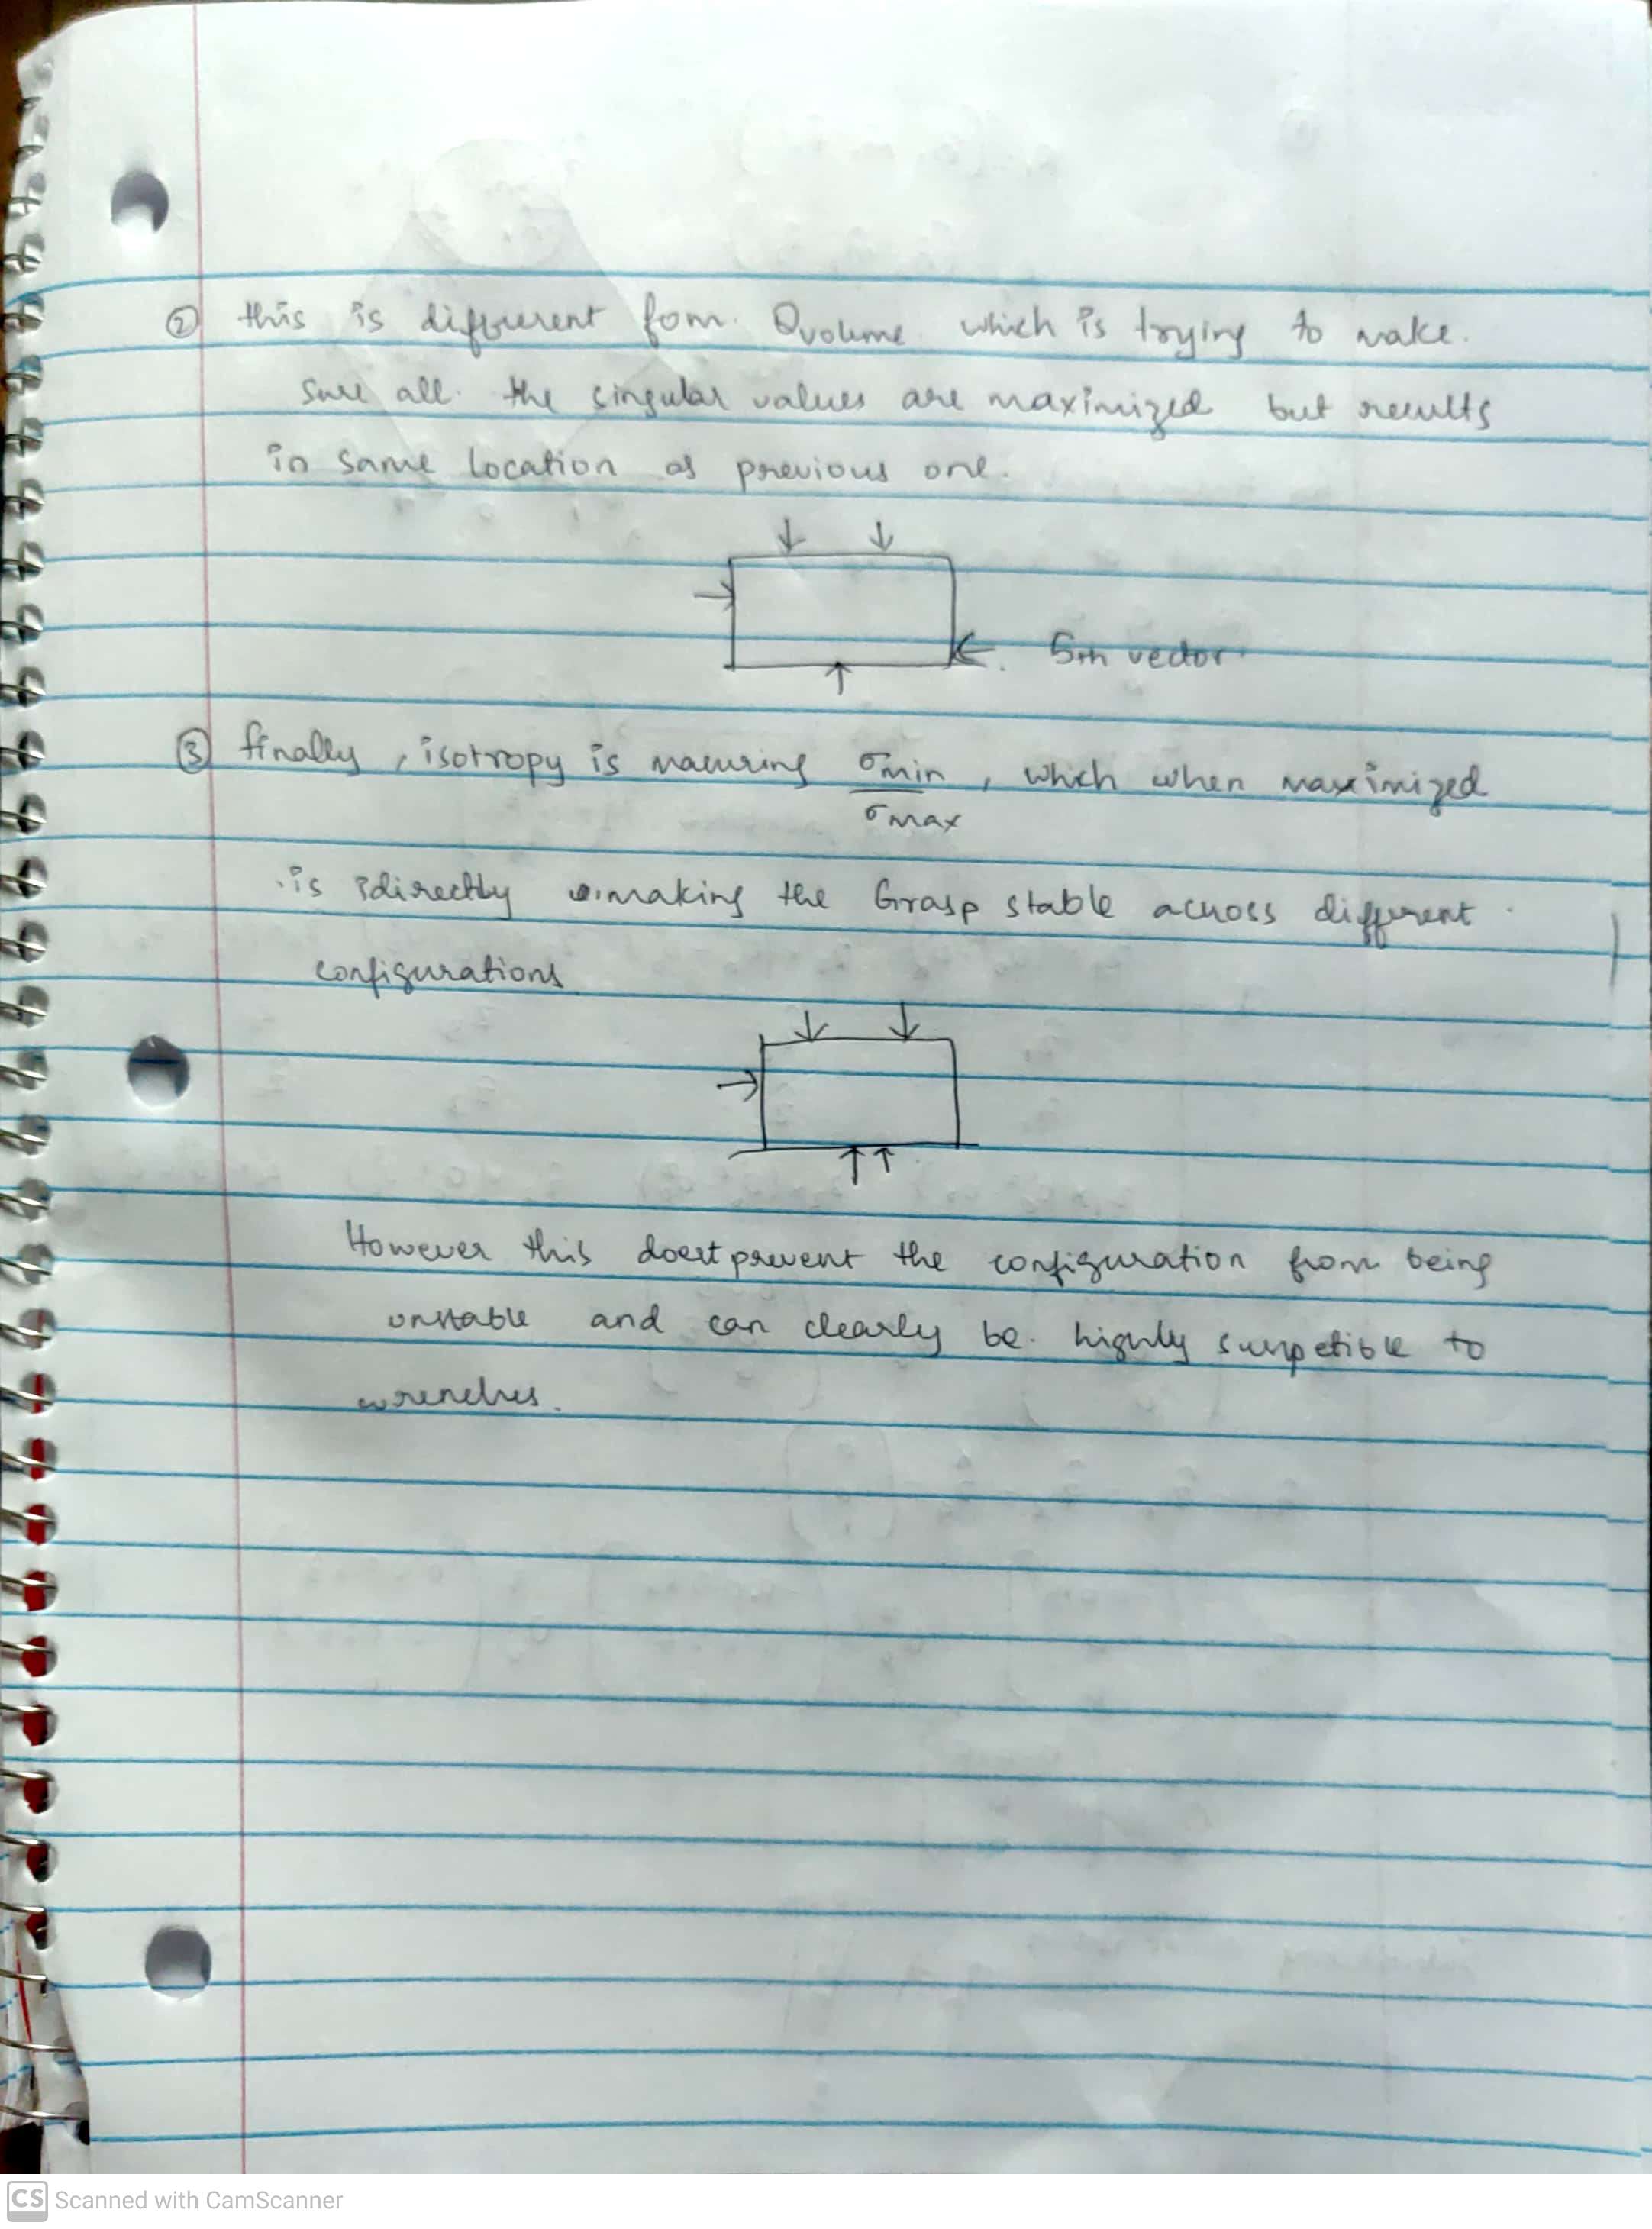 ② this is different fom. Qvolume which is trying to make.
sure all. the singular values are maximized but results
in same location as previous one.
5th vector
③ finally, isotropy is masuring σmin , which when maximized
σmax
is idirectly making the Grasp stable across different
configurations
However this doest prevent the configuration from being
unstable and can clearly be. highly suspetible to
wrenches.
CS Scanned with CamScanner